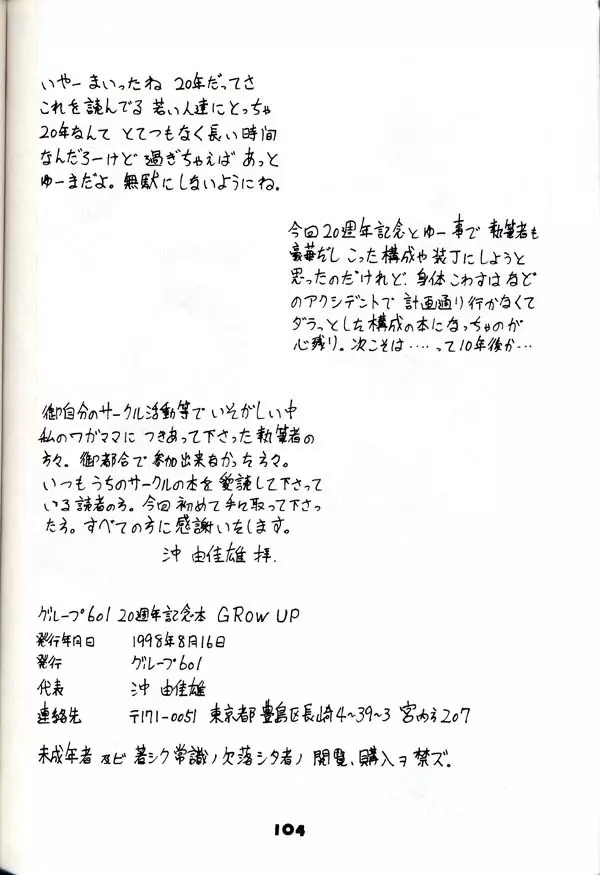 いやー まいったね 20年だってさ
これを読んでる 若い人達にとっちゃ
20年なんて とてつもなく長い時間
なんだろーけど 過ぎちゃえば あっと
ゆーまだよ。無駄にしないようにね。
今回20週年記念とゆー事で 執筆者も
豪華だし こった構成や装丁にしようと
思ったのだけれど、身体こわすは など
のアクシデントで 計画通り行かなくて
ダラっとした構成の本になっちゃのが
心残り。次こそは……って10年後か…
御自分のサークル活動等で いそがしい中
私のワガママに つきあって下さった執筆者の
方々。御都合で参加出来なかった方々。
いつもうちのサークルの本を愛読して下さって
いる読者の方。今回初めて手に取って下さっ
た方。すべての方に感謝いをします。
沖 由佳雄 拝.
グループ601 20週年記念本 GROW UP
発行年月日 1998年8月16日
発行 グループ601
代表 沖 由佳雄
連絡先 〒171-0051 東京都豊島区長崎4~39~3 宮方207
未成年者 及ビ 著シク常識ノ欠落シタ者ノ 閲覧、購入ヲ禁ズ。
104